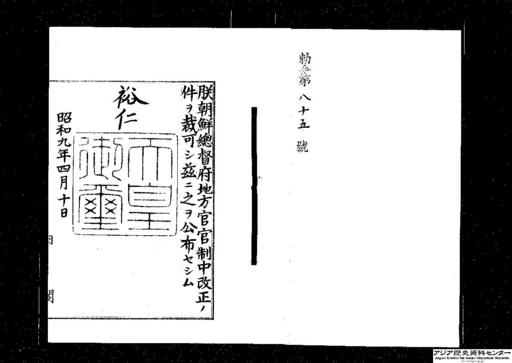 勅令第八十五號
朕朝鮮總督府地方官官制中改正ノ
件ヲ裁可シ茲ニ之ヲ公布セシム
裕仁
天皇
御璽
昭和九年四月十日
内閣
アジア歴史資料センター
Japan Center for Asian Historical Records